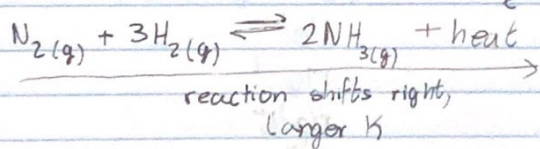 N₂(g) + 3H₂(g) ⇌ 2NH₃(g) + heat
reaction shifts right,
larger K